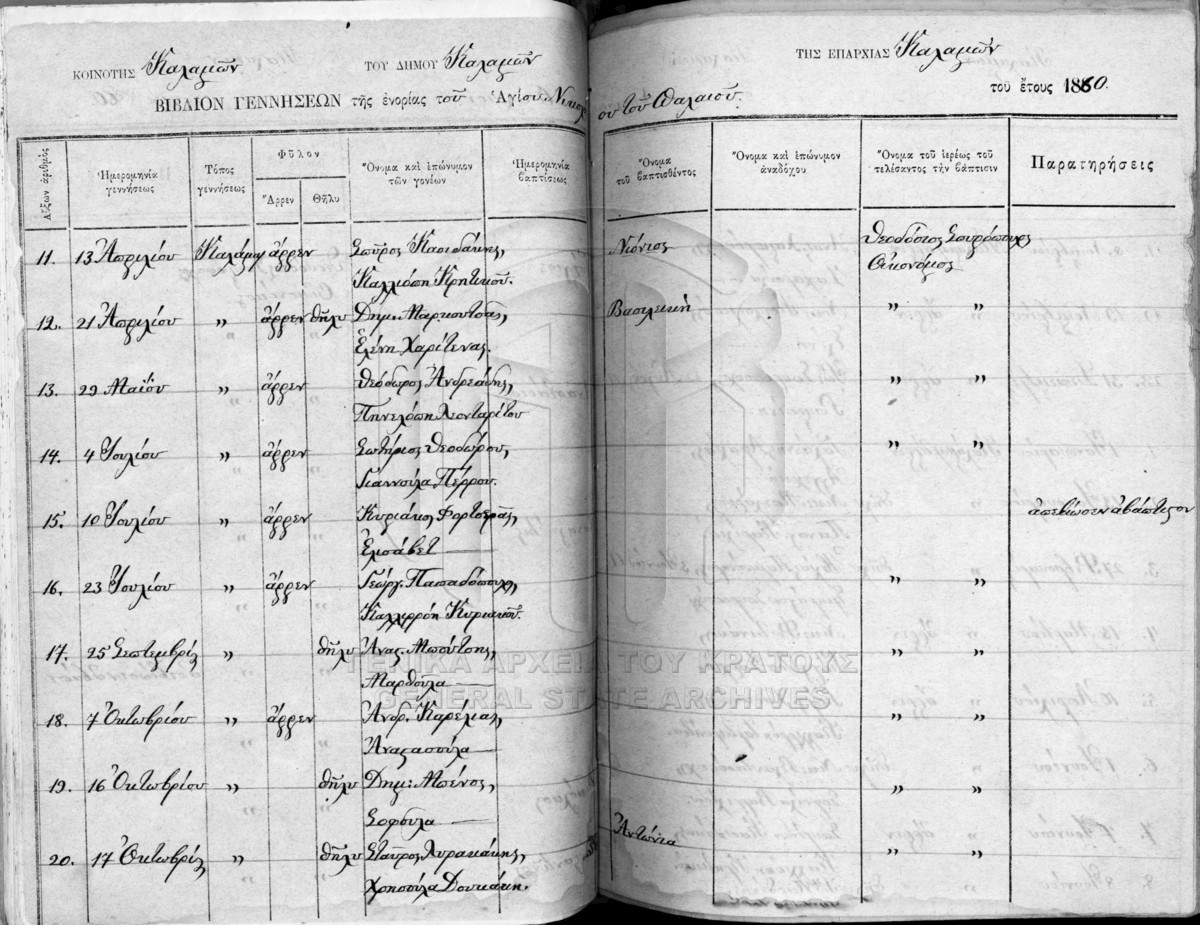 ΚΟΙΝΟΤΗΣ Καλαμῶν ΤΟΥ ΔΗΜΟΥ Καλαμῶν ΤΗΣ ΕΠΑΡΧΙΑΣ Καλαμῶν
ΒΙΒΛΙΟΝ ΓΕΝΝΗΣΕΩΝ τῆς ἐνορίας τοῦ Ἁγίου Νικολάου τοῦ Παλαιοῦ. τοῦ ἔτους 1880.
Αὔξων ἀριθμός
Ἡμερομηνία γεννήσεως
Τόπος γεννήσεως
Φῦλον
Ἄρρεν Θῆλυ
Ὄνομα καὶ ἐπώνυμον τῶν γονέων
Ἡμερομηνία βαπτίσεως
Ὄνομα τοῦ βαπτισθέντος
Ὄνομα καὶ ἐπώνυμον ἀναδόχου
Ὄνομα τοῦ ἱερέως τοῦ τελέσαντος τὴν βάπτισιν
Παρατηρήσεις
11. 13 Ἀπριλίου Καλάμαι ἄρρεν Σπῦρος Θεοδόσιος
Καλλιόπη Κρητικοῦ. Οἰκονόμος
12. 21 Ἀπριλίου " ἄρρεν θῆλυ Δημ. Μαρκουτσᾶς, Βασιλικὴ " "
Ἑλένη
13. 29 Μαΐου " ἄρρεν Θεόδωρος Ἀνδρεάδης, " "
Πηνελόπη Λεονταρίτου
14. 4 Ἰουλίου " ἄρρεν Σωτήριος Θεοδώρου, " "
Γιαννούλα Πέρρου.
15. 10 Ἰουλίου " ἄρρεν Κυριάκος ἀπεβίωσεν ἀβάπτιστον
Ἐλισάβετ
16. 23 Ἰουλίου " ἄρρεν Γεώργ. Παπαδόπουλος, " "
Καλλιρρόη Κυριακοῦ.
17. 25 Σεπτεμβρίου " θῆλυ Ἀνασ. Μπούτσης, " "
Μαρθούλα
18. 7 Ὀκτωβρίου " ἄρρεν Ἀνδρ. Καρέλιας, " "
Ἀναστασούλα
19. 16 Ὀκτωβρίου " θῆλυ Δημ: Μπένος, " "
Σοφούλα
20. 17 Ὀκτωβρίου " θῆλυ Σταῦρος Λυρακάκης, Ἀντώνια " "
Χρησούλα Δουκάκη.
ΓΕΝΙΚΑ ΑΡΧΕΙΑ ΤΟΥ ΚΡΑΤΟΥΣ
GENERAL STATE ARCHIVES